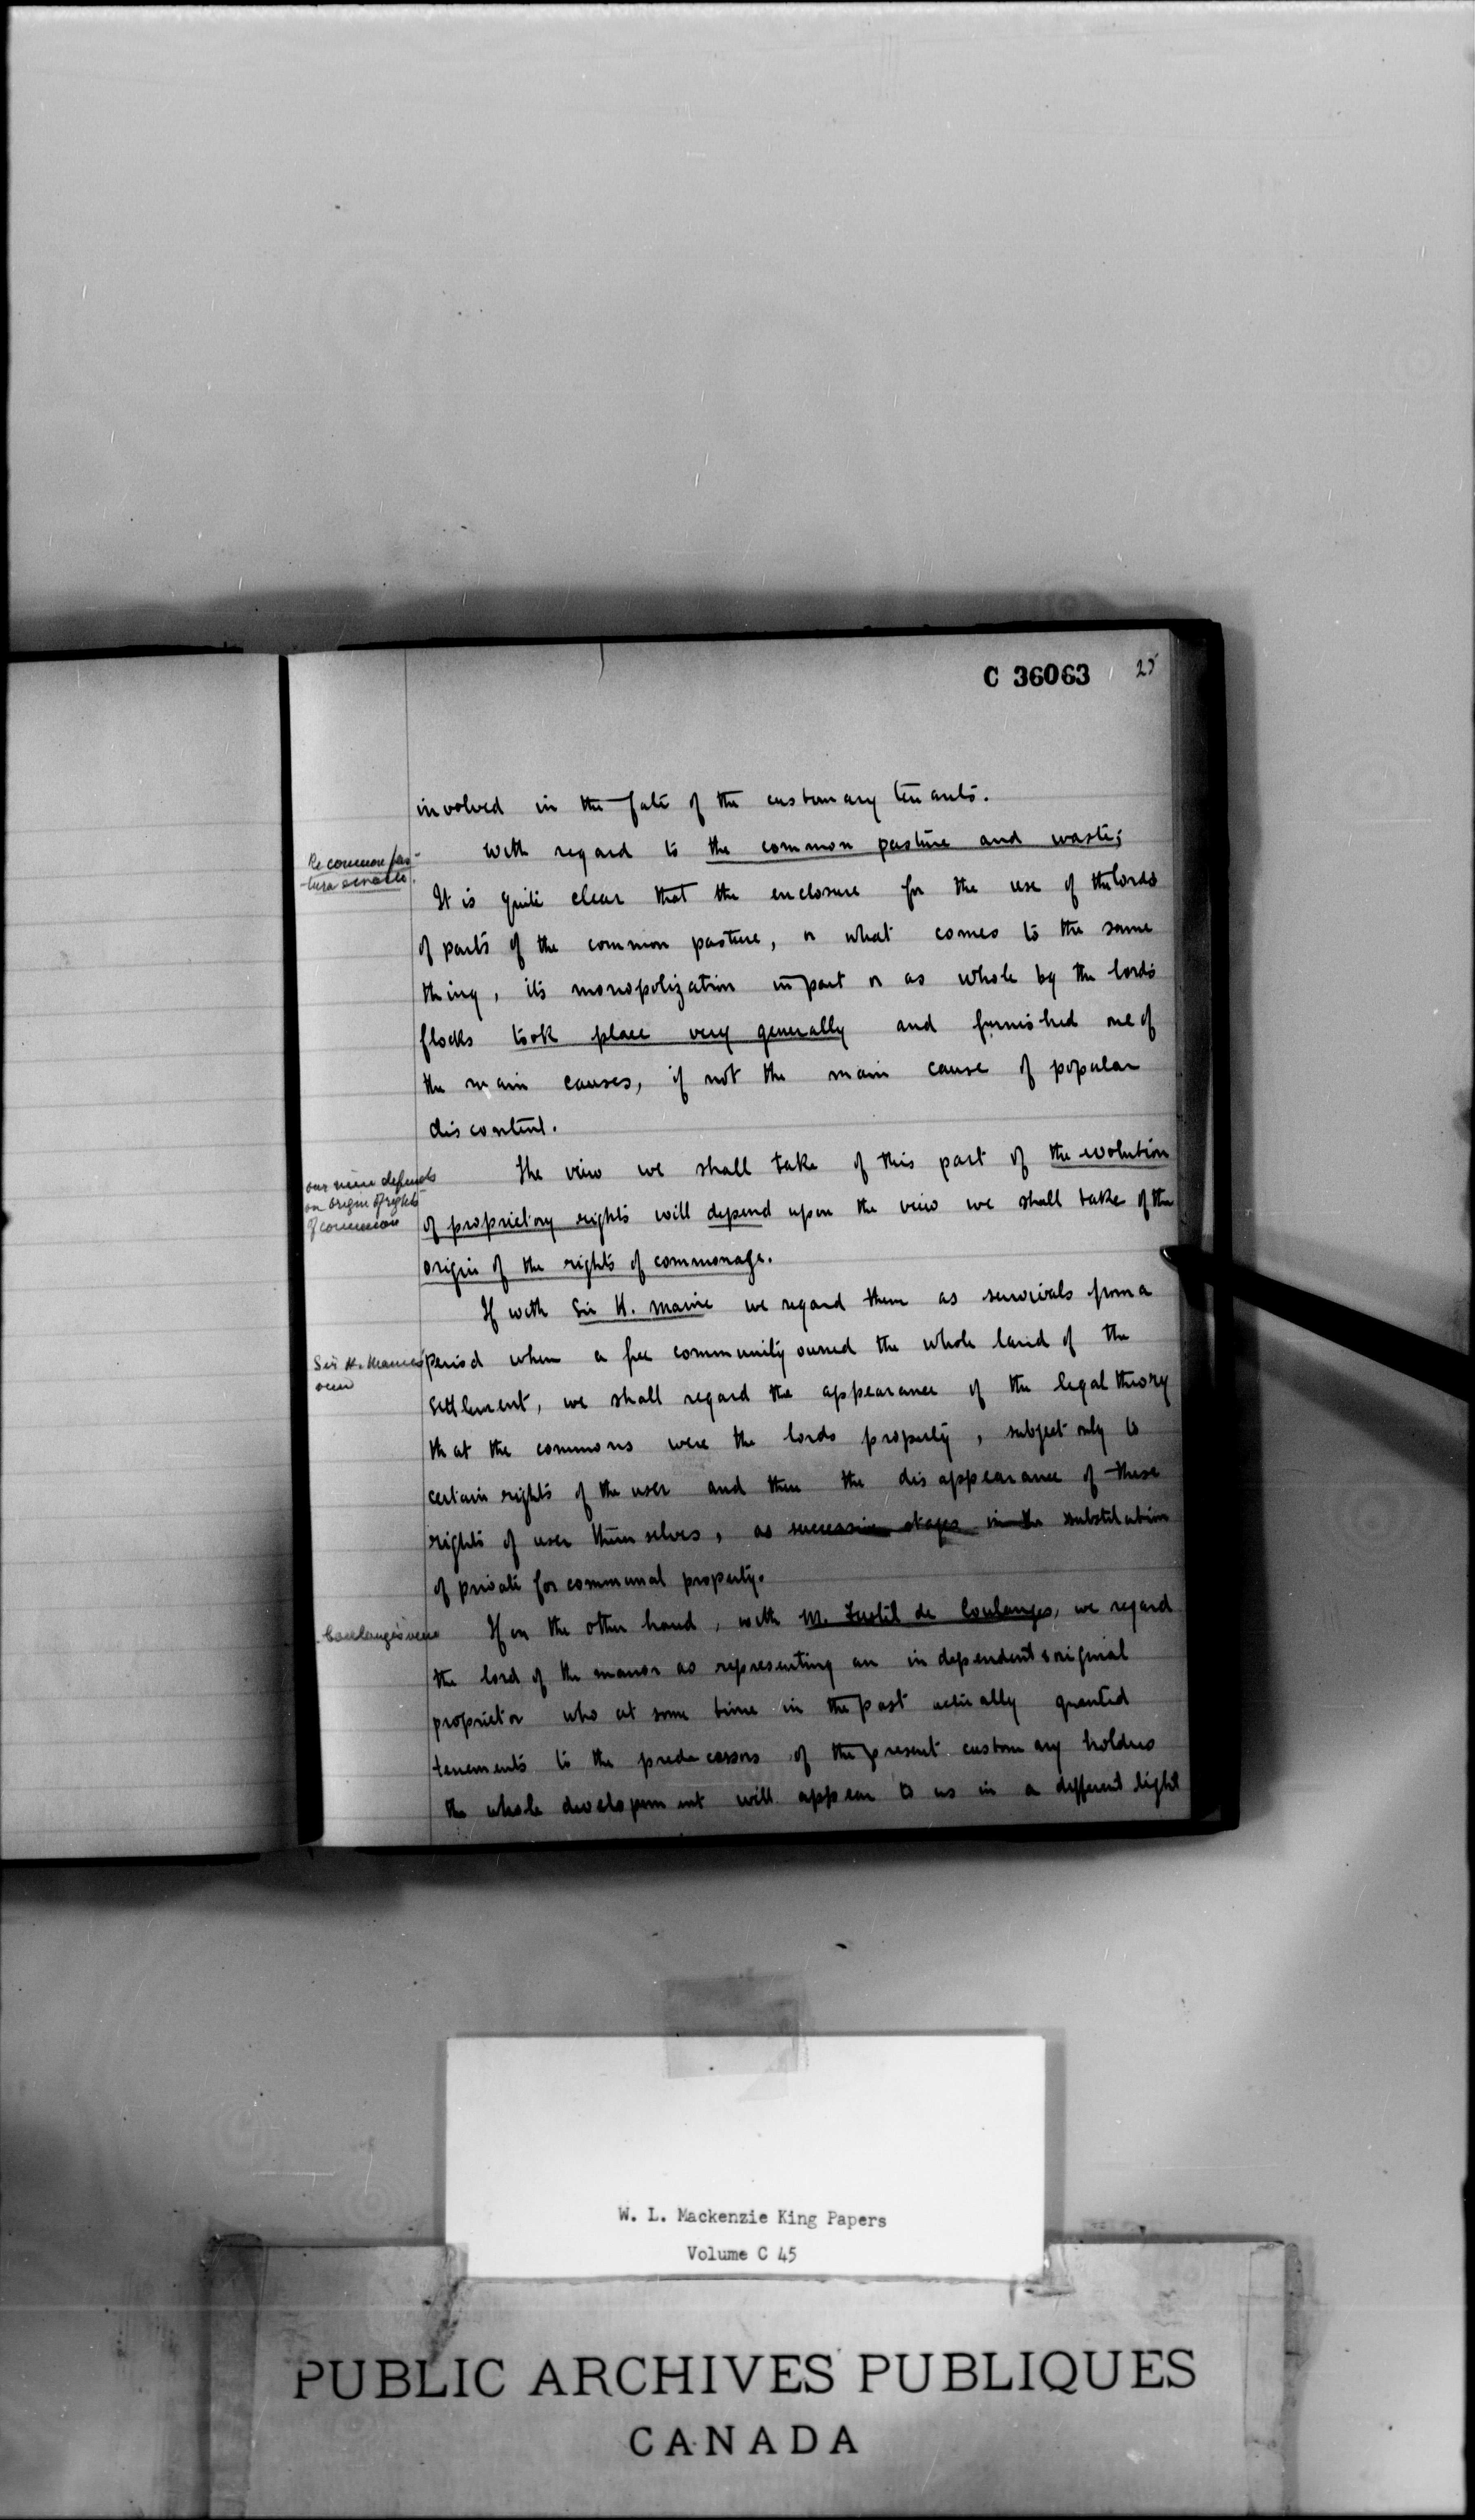 C 36063 25
involved in the fate of the customary tenants.
Re common pas-
-tura
With regard to the common pasture and waste;
It is quite clear that the enclosure for the use of the lords
of parts of the common pasture, or what comes to the same
thing, its monopolization in part or as whole by the lords
flocks took place very generally and furnished one of
the main causes, if not the main cause of popular
discontent.
our view depends
on origin of rights
of common
The view we shall take of this part of the evolution
of proprietory rights will depend upon the view we shall take of the
origin of the rights of commonage.
If with Sir H. Maine we regard them as survivals from a
Sir H. Maine's
view
period when a free community owned the whole land of the
settlement, we shall regard the appearance of the legal theory
that the commons were the lords property, subject only to
certain rights of the user and then the disappearance of these
rights of user themselves, as successive stages in the substitution
of private for communal property.
Coulanges view
If on the other hand, with M. Fustel de Coulanges, we regard
the lord of the manor as representing an independent & original
proprietor who at some time in the past actually granted
tenements to the predecessors of the present customary holders
the whole development will appear to us in a different light
W. L. Mackenzie King Papers
Volume C 45
PUBLIC ARCHIVES PUBLIQUES
CANADA